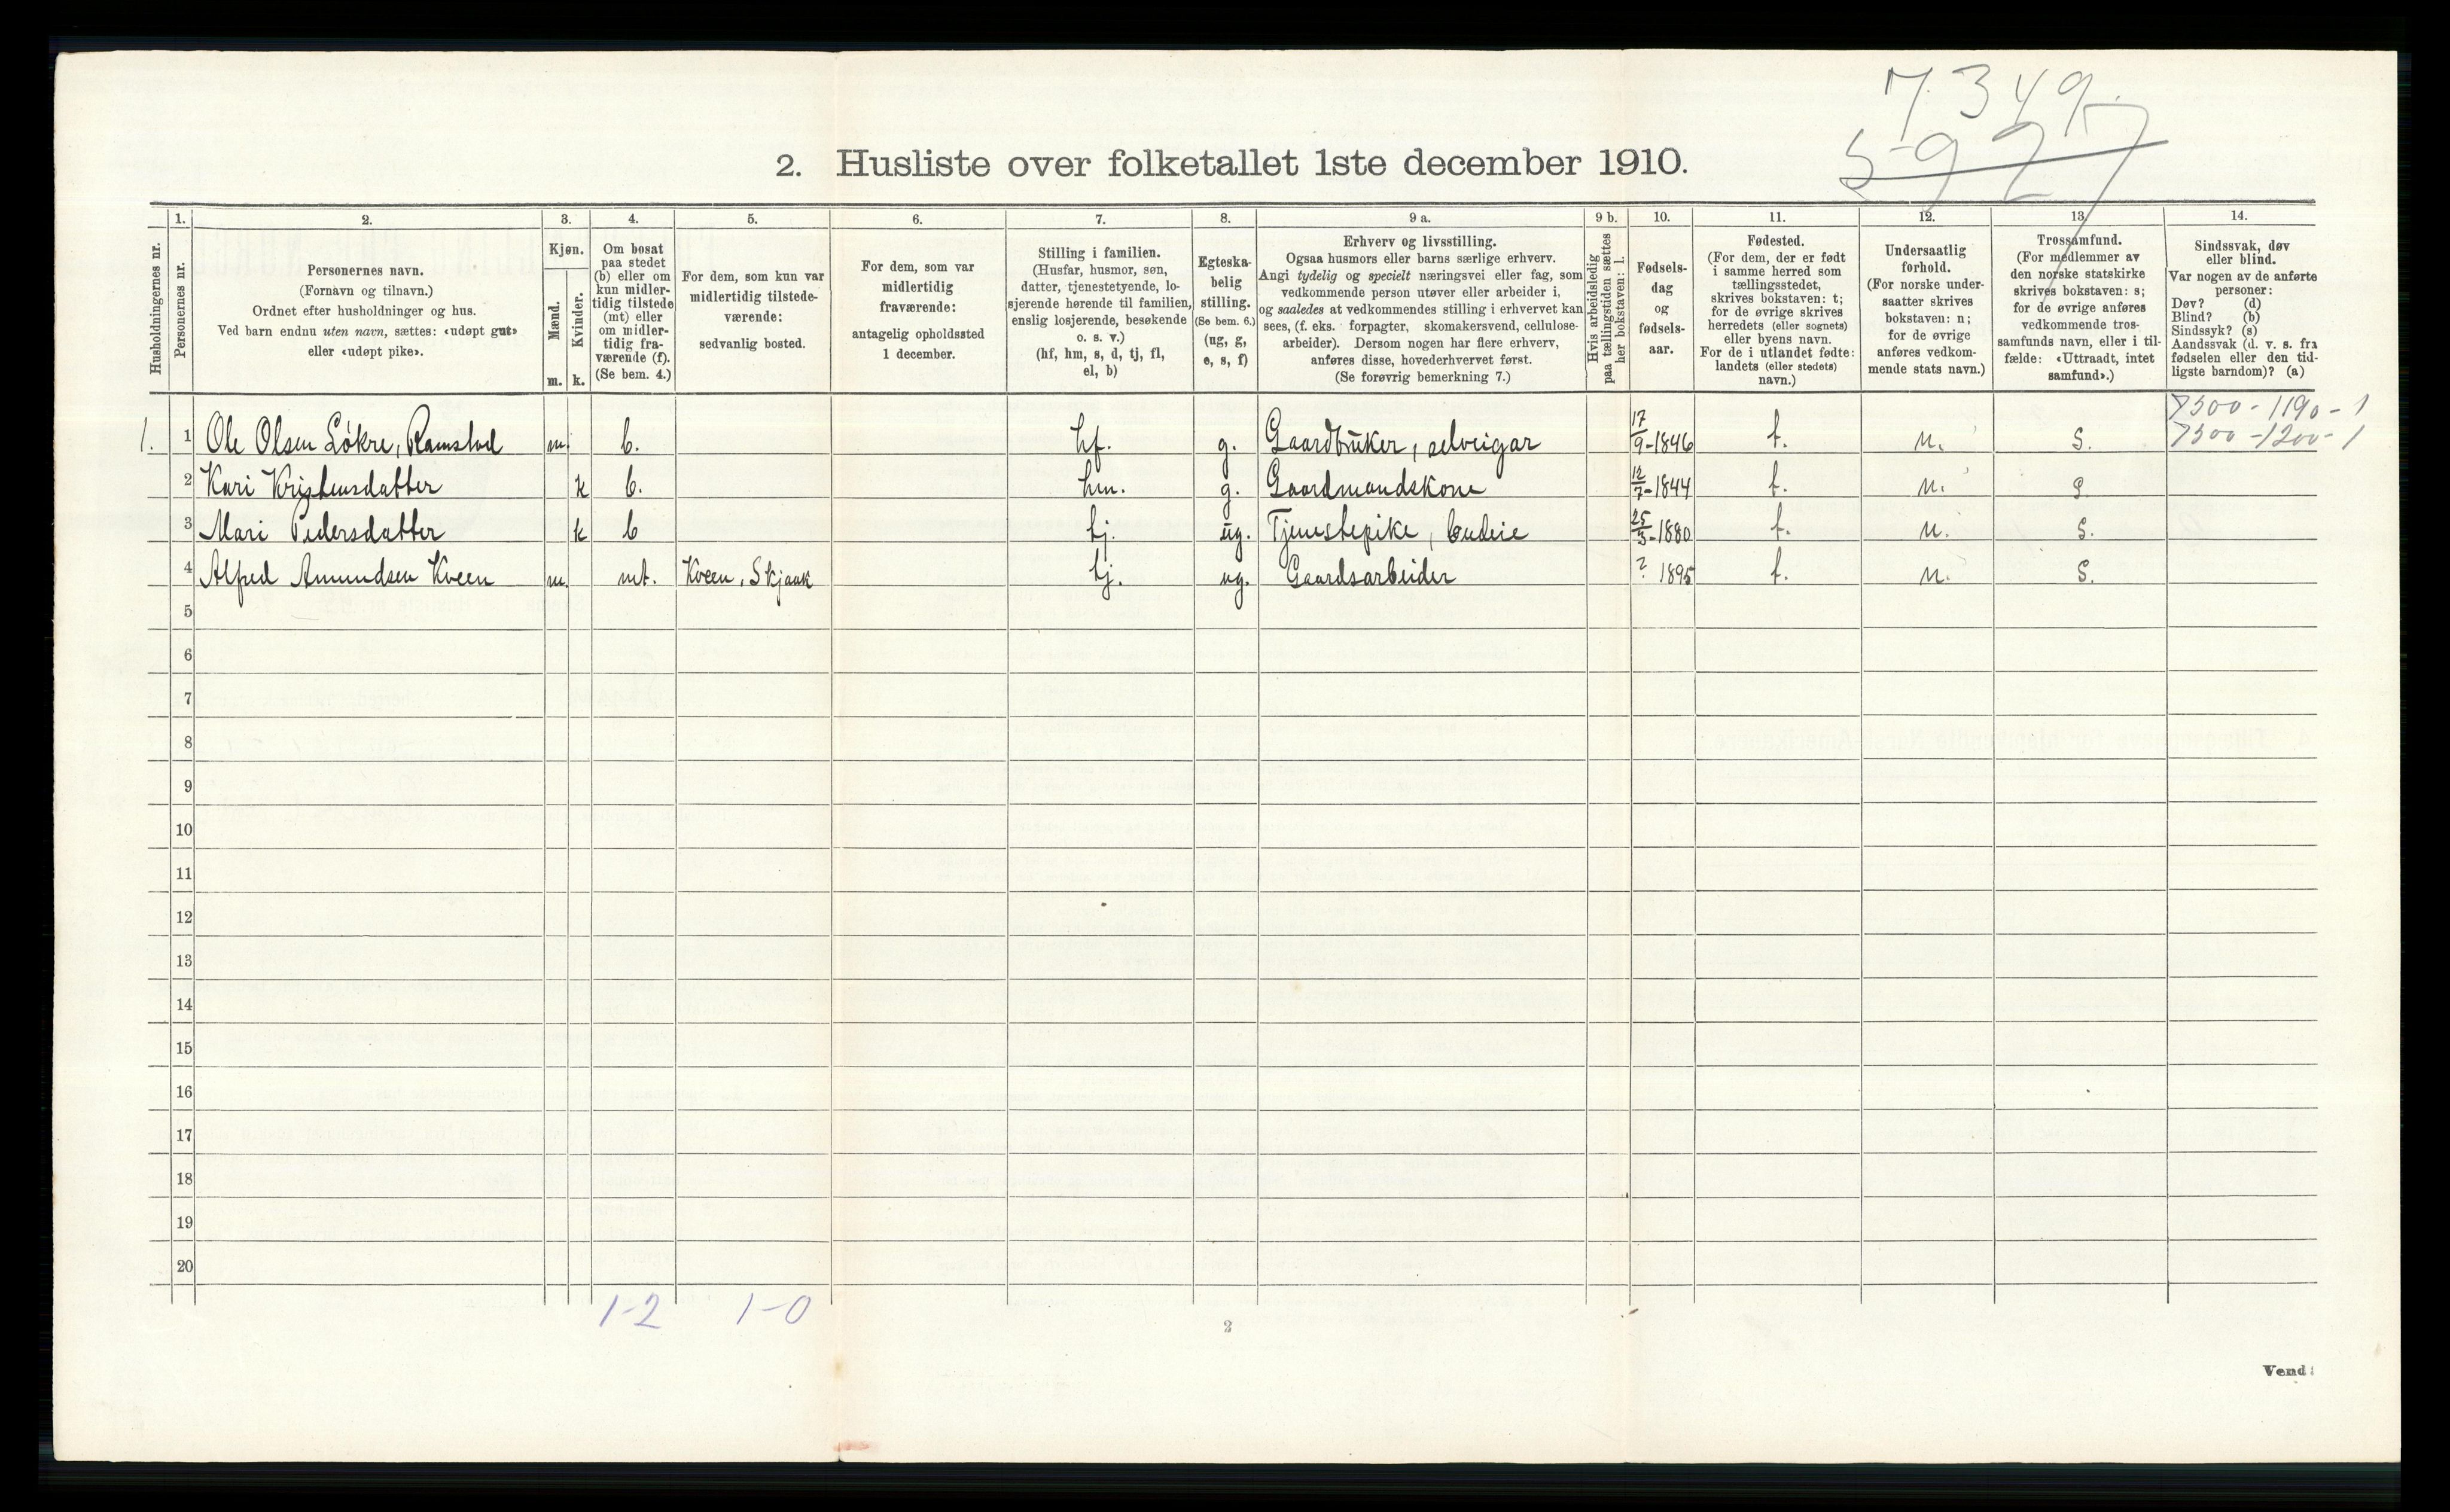 7349
5927
2. Husliste over folketallet 1ste december 1910.
Husholdningernes nr.
1.
Personernes nr.
2.
Personernes navn.
(Fornavn og tilnavn.)
Ordnet efter husholdninger og hus.
Ved barn endnu uten navn, sættes: «udøpt gut»
eller «udøpt pike».
3.
Kjøn.
Mænd.
Kvinder.
m. k.
4.
Om bosat
paa stedet
(b) eller om
kun midler-
tidig tilstede
(mt) eller
om midler-
tidig fra-
værende (f).
(Se bem. 4.)
5.
For dem, som kun var
midlertidig tilstede-
værende:
sedvanlig bosted.
6.
For dem, som var
midlertidig
fraværende:
antagelig opholdssted
1 december.
7.
Stilling i familien.
(Husfar, husmor, søn,
datter, tjenestetyende, lo-
sjerende hørende til familien,
enslig losjerende, besøkende
o. s. v.)
(hf, hm, s, d, tj, fl,
el, b)
8.
Egteska-
belig
stilling.
(Se bem. 6.)
(ug, g,
e, s, f)
9 a.
Erhverv og livsstilling.
Ogsaa husmors eller barns særlige erhverv.
Angi tydelig og specielt næringsvei eller fag, som
vedkommende person utøver eller arbeider i,
og saaledes at vedkommendes stilling i erhvervet kan
sees, (f. eks. forpagter, skomakersvend, cellulose-
arbeider). Dersom nogen har flere erhverv,
anføres disse, hovederhvervet først.
(Se forøvrig bemerkning 7.)
9 b.
Hvis arbeidsledig
paa tællingstiden sættes
her bokstaven: l.
10.
Fødsels-
dag
og
fødsels-
aar.
11.
Fødested.
(For dem, der er født
i samme herred som
tællingsstedet,
skrives bokstaven: t;
for de øvrige skrives
herredets (eller sognets)
eller byens navn.
For de i utlandet fødte:
landets (eller stedets)
navn.)
12.
Undersaatlig
forhold.
(For norske under-
saatter skrives
bokstaven: n;
for de øvrige
anføres vedkom-
mende stats navn.)
13.
Trossamfund.
(For medlemmer av
den norske statskirke
skrives bokstaven: s;
for de øvrige anføres
vedkommende tros-
samfunds navn, eller i til-
fælde: «Uttraadt, intet
samfund».)
14.
Sindssvak, døv
eller blind.
Var nogen av de anførte
personer:
Døv? (d)
Blind? (b)
Sindssyk? (s)
Aandssvak (d. v. s. fra
fødselen eller den tid-
ligste barndom)? (a)
7300-1190-1
1. 1 Ole Olsen Løkre, Ramstad m. b. hf. g. Gaardbruker, selveigar 17/9-1846 t. n. s. 7300-1200-1
2 Kari Kristensdatter k b. hm. g. Gaardmandskone 12/7-1844 t. n. s
3 Mari Pedersdatter k b tj. ug. Tjenestepike, budeie 25/3-1880 t. n. s.
4 Alfred Amundsen Kveen m. mt. Kveen, Skjaak tj. ug. Gaardsarbeider ? 1895 t. n. s.
5
6
7
8
9
10
11
12
13
14
15
16
17
18
19
20
1-2 1-0
2
Vend!